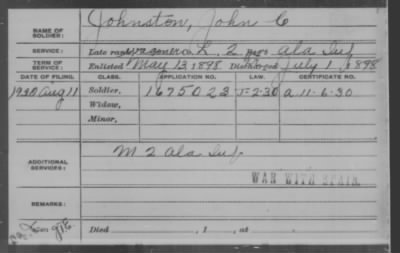 NAME OF SOLDIER: Johnston, John C
SERVICE: Late rank, L. 2 Regt Ala Inf
TERM OF SERVICE: Enlisted May 13 1898 Discharged July 1 1898
DATE OF FILING. CLASS. APPLICATION NO. LAW. CERTIFICATE NO.
1930 Aug 11 Soldier, 1675023 J-2-30 a. 11-6-30
Widow,
Minor,
ADDITIONAL SERVICES: M 2 Ala Inf
WAR WITH SPAIN.
REMARKS:
Died , 1 , at